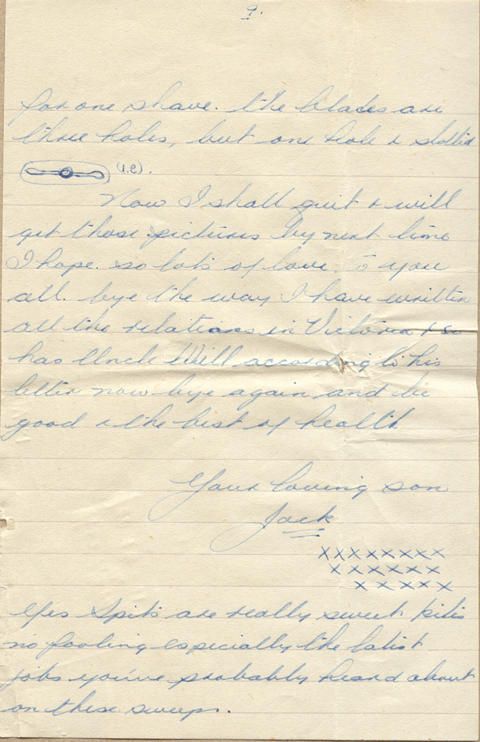 9.
for one shave. the blades are
three holes, but one hole & slotted
(i.e).
Now I shall quit & will
get those pictures by next time
I hope. so lots of love to you
all. bye the way I have written
all the relations in Victoria & so
has Uncle Will according to his
letter now bye again and be
good & the best of health
Your loving son
Jack
XXXXXXXX
XXXXXX
XXXXX
Yes Spits are really sweet kites
no fooling especially the latest
jobs you've probably heard about
on these sweeps.